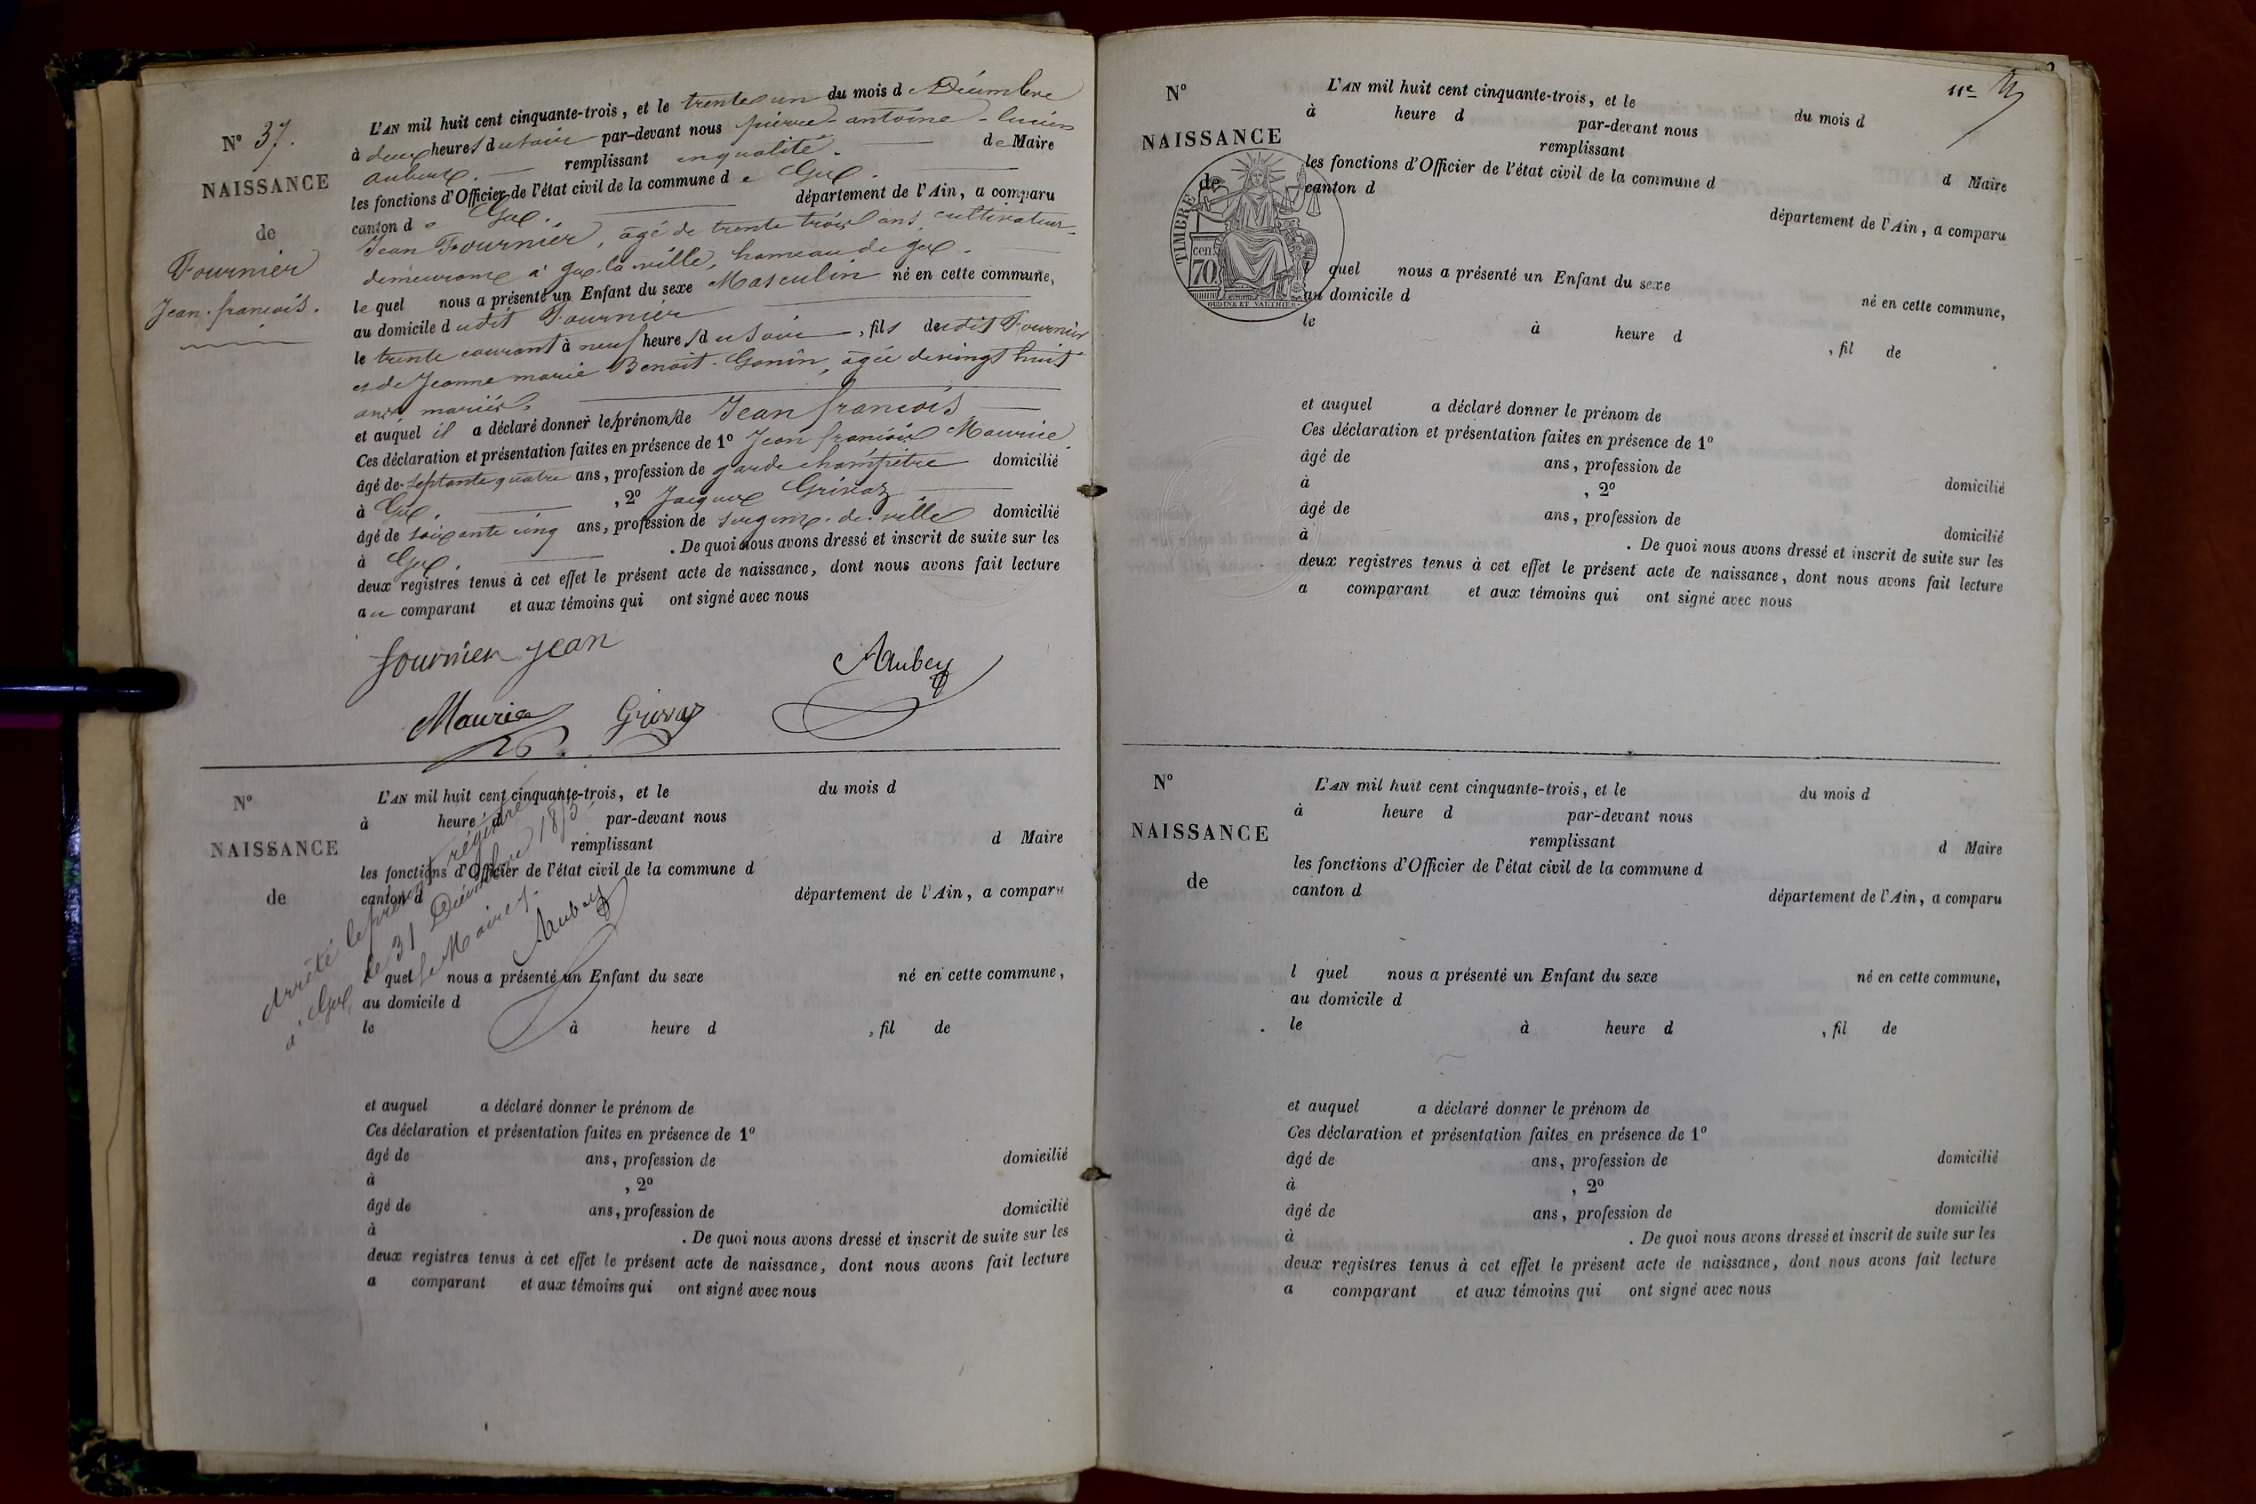 N° 37.
NAISSANCE
de
Fournier
Jean-francois.
L'AN mil huit cent cinquante-trois, et le trente un du mois de Décembre
à deux heures du soir par-devant nous pierre-antoine-lucien
aubery. remplissant en qualité de Maire
les fonctions d'Officier de l'état civil de la commune de Gex.
canton de Gex. département de l'Ain, a comparu
Jean Fournier, âgé de trente trois ans, cultivateur
demeurant à gex-la-ville, hameau de gex.
le quel nous a présenté un Enfant du sexe Masculin né en cette commune,
au domicile dudit Fournier
le trente courant à neuf heures du soir, fils dudit Fournier
et de Jeanne marie Benoit-Gonin, agée de vingt huit
ans mariés.
et auquel il a déclaré donner les prénoms de Jean francois
Ces déclaration et présentation faites en présence de 1° Jean francois Maurice
âgé de septante quatre ans, profession de garde champêtre domicilié
à Gex. , 2° Jacques Grivaz
âgé de soixante cinq ans, profession de sergent-de-ville domicilié
à Gex. . De quoi nous avons dressé et inscrit de suite sur les
deux registres tenus à cet effet le présent acte de naissance, dont nous avons fait lecture
au comparant et aux témoins qui ont signé avec nous
fournier jean
Aubery
Maurice Grivaz
N°
NAISSANCE
de
L'AN mil huit cent cinquante-trois, et le du mois d
à heure d par-devant nous
remplissant d Maire
les fonctions d'Officier de l'état civil de la commune d
canton d département de l'Ain, a comparu
l quel nous a présenté un Enfant du sexe né en cette commune,
au domicile d
le à heure d , fil de
et auquel a déclaré donner le prénom de
Ces déclaration et présentation faites en présence de 1°
âgé de ans, profession de domicilié
à , 2°
âgé de ans, profession de domicilié
à . De quoi nous avons dressé et inscrit de suite sur les
deux registres tenus à cet effet le présent acte de naissance, dont nous avons fait lecture
a comparant et aux témoins qui ont signé avec nous
Arrêté le présent régistre
à Gex, le 31 Décembre 1853
Le Maire
Aubery
11e
N°
NAISSANCE
de
TIMBRE
70 cen.
OUDINE ET VAUTHIER
L'AN mil huit cent cinquante-trois, et le du mois d
à heure d par-devant nous
remplissant d Maire
les fonctions d'Officier de l'état civil de la commune d
canton d département de l'Ain, a comparu
l quel nous a présenté un Enfant du sexe né en cette commune,
au domicile d
le à heure d , fil de
et auquel a déclaré donner le prénom de
Ces déclaration et présentation faites en présence de 1°
âgé de ans, profession de domicilié
à , 2°
âgé de ans, profession de domicilié
à . De quoi nous avons dressé et inscrit de suite sur les
deux registres tenus à cet effet le présent acte de naissance, dont nous avons fait lecture
a comparant et aux témoins qui ont signé avec nous
N°
NAISSANCE
de
L'AN mil huit cent cinquante-trois, et le du mois d
à heure d par-devant nous
remplissant d Maire
les fonctions d'Officier de l'état civil de la commune d
canton d département de l'Ain, a comparu
l quel nous a présenté un Enfant du sexe né en cette commune,
au domicile d
le à heure d , fil de
et auquel a déclaré donner le prénom de
Ces déclaration et présentation faites en présence de 1°
âgé de ans, profession de domicilié
à , 2°
âgé de ans, profession de domicilié
à . De quoi nous avons dressé et inscrit de suite sur les
deux registres tenus à cet effet le présent acte de naissance, dont nous avons fait lecture
a comparant et aux témoins qui ont signé avec nous